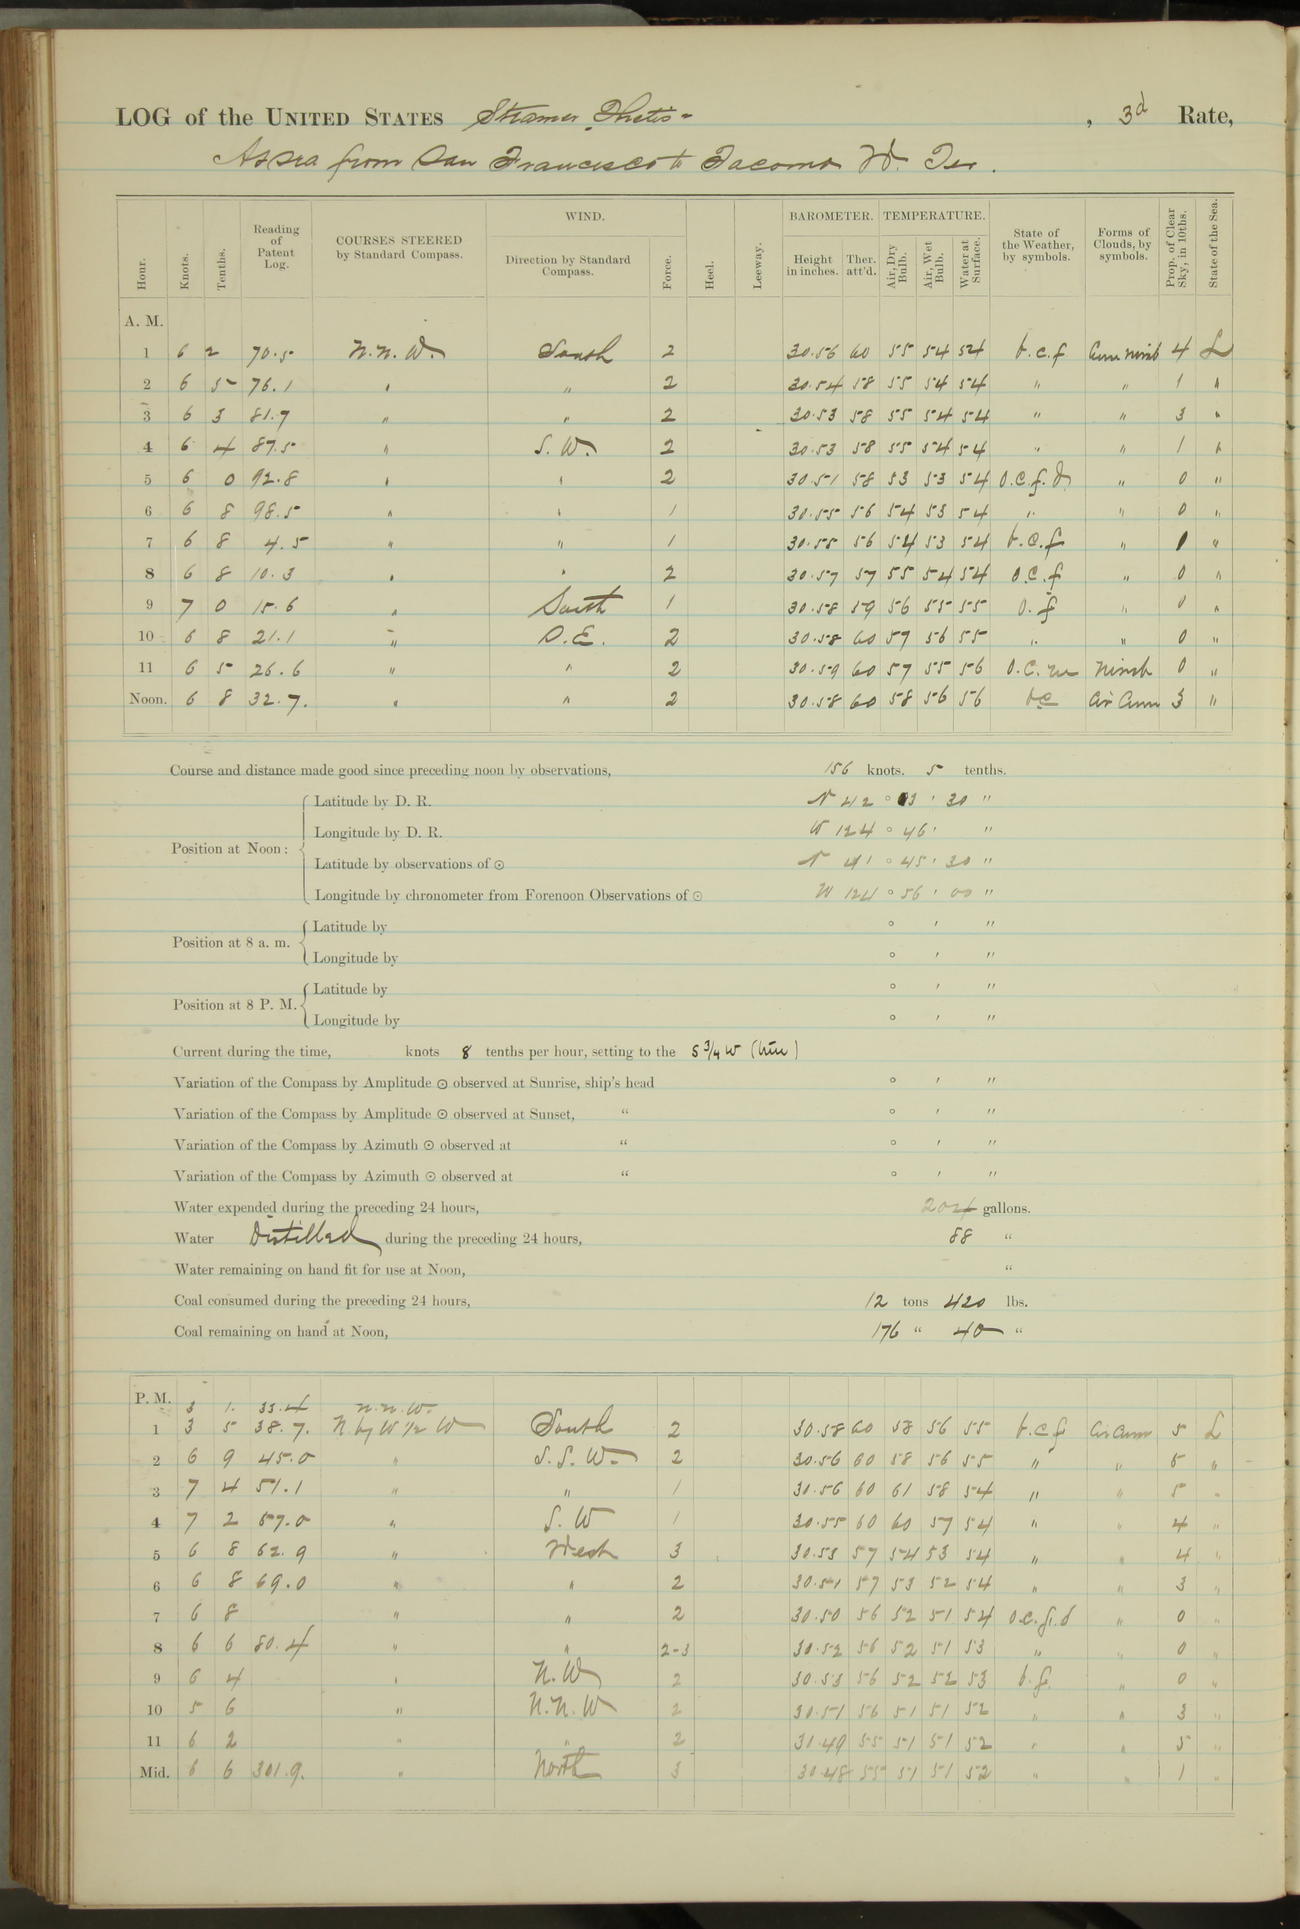 LOG of the UNITED STATES Steamer Thetis , 3d Rate,
At sea from San Francisco to Tacoma W. Ter.
Hour. Knots. Tenths. Reading of Patent Log. COURSES STEERED by Standard Compass. WIND. Direction by Standard Compass. Force. Heel. Leeway. BAROMETER. Height in inches. Ther. att'd. TEMPERATURE. Air, Dry Bulb. Air, Wet Bulb. Water at Surface. State of the Weather, by symbols. Forms of Clouds, by symbols. Prop. of Clear Sky, in 10ths. State of the Sea.
A. M.
1 6 2 70.5 N.N.W. South 2 30.56 60 55 54 54 b.c.f Cum Nimb 4 L
2 6 5 76.1 " " 2 30.54 58 55 54 54 " " 1 "
3 6 3 81.7 " " 2 30.53 58 55 54 54 " " 3 "
4 6 4 87.5 " S.W. 2 30.53 58 55 54 54 " " 1 "
5 6 0 92.8 " " 2 30.51 58 53 53 54 O.C.f.d. " 0 "
6 6 8 98.5 " " 1 30.55 56 54 53 54 " " 0 "
7 6 8 4.5 " " 1 30.55 56 54 53 54 b.c.f " 1 "
8 6 8 10.3 " " 2 30.57 57 55 54 54 O.C.f " 0 "
9 7 0 15.6 " South 1 30.58 59 56 55 55 O.f " 0 "
10 6 8 21.1 " S.E. 2 30.58 60 57 56 55 " " 0 "
11 6 5 26.6 " " 2 30.59 60 57 55 56 O.C.m Nimb 0 "
Noon. 6 8 32.7. " " 2 30.58 60 58 56 56 bc Cir Cum 3 "
Course and distance made good since preceding noon by observations, 156 knots. 5 tenths.
Position at Noon:
Latitude by D. R. N 42 ° 03 ' 30 "
Longitude by D. R. W 124 ° 46 ' "
Latitude by observations of ⊙ N 41 ° 45 ' 30 "
Longitude by chronometer from Forenoon Observations of ⊙ W 124 ° 56 ' 00 "
Position at 8 a. m.
Latitude by ° ' "
Longitude by ° ' "
Position at 8 P. M.
Latitude by ° ' "
Longitude by ° ' "
Current during the time, knots 8 tenths per hour, setting to the S 3/4 W (true)
Variation of the Compass by Amplitude ⊙ observed at Sunrise, ship's head ° ' "
Variation of the Compass by Amplitude ⊙ observed at Sunset, " ° ' "
Variation of the Compass by Azimuth ⊙ observed at " ° ' "
Variation of the Compass by Azimuth ⊙ observed at " ° ' "
Water expended during the preceding 24 hours, 204 gallons.
Water Distilled during the preceding 24 hours, 88 "
Water remaining on hand fit for use at Noon, "
Coal consumed during the preceding 24 hours, 12 tons 420 lbs.
Coal remaining on hand at Noon, 176 " 40 "
P. M. 3 1. 33.4 N.N.W.
1 3 5 38.7. N. by W 1/2 W South 2 30.58 60 58 56 55 b.c.f Cir Cum 5 L
2 6 9 45.0 " S.S.W. 2 30.56 60 58 56 55 " " 5 "
3 7 4 51.1 " " 1 30.56 60 61 58 54 " " 5 "
4 7 2 57.0 " S.W 1 30.55 60 60 57 54 " " 4 "
5 6 8 62.9 " West 3 30.53 57 54 53 54 " " 4 "
6 6 8 69.0 " " 2 30.51 57 53 52 54 " " 3 "
7 6 8 " " 2 30.50 56 52 51 54 o.c.f.d " 0 "
8 6 6 80.4 " " 2-3 30.52 56 52 51 53 " " 0 "
9 6 4 " N.W 2 30.53 56 52 52 53 b.f. " 0 "
10 5 6 " N.N.W 2 30.51 56 51 51 52 " " 3 "
11 6 2 " " 2 31.49 55 51 51 52 " " 5 "
Mid. 6 6 301.9. " North 3 30.48 55 51 51 52 " " 1 "